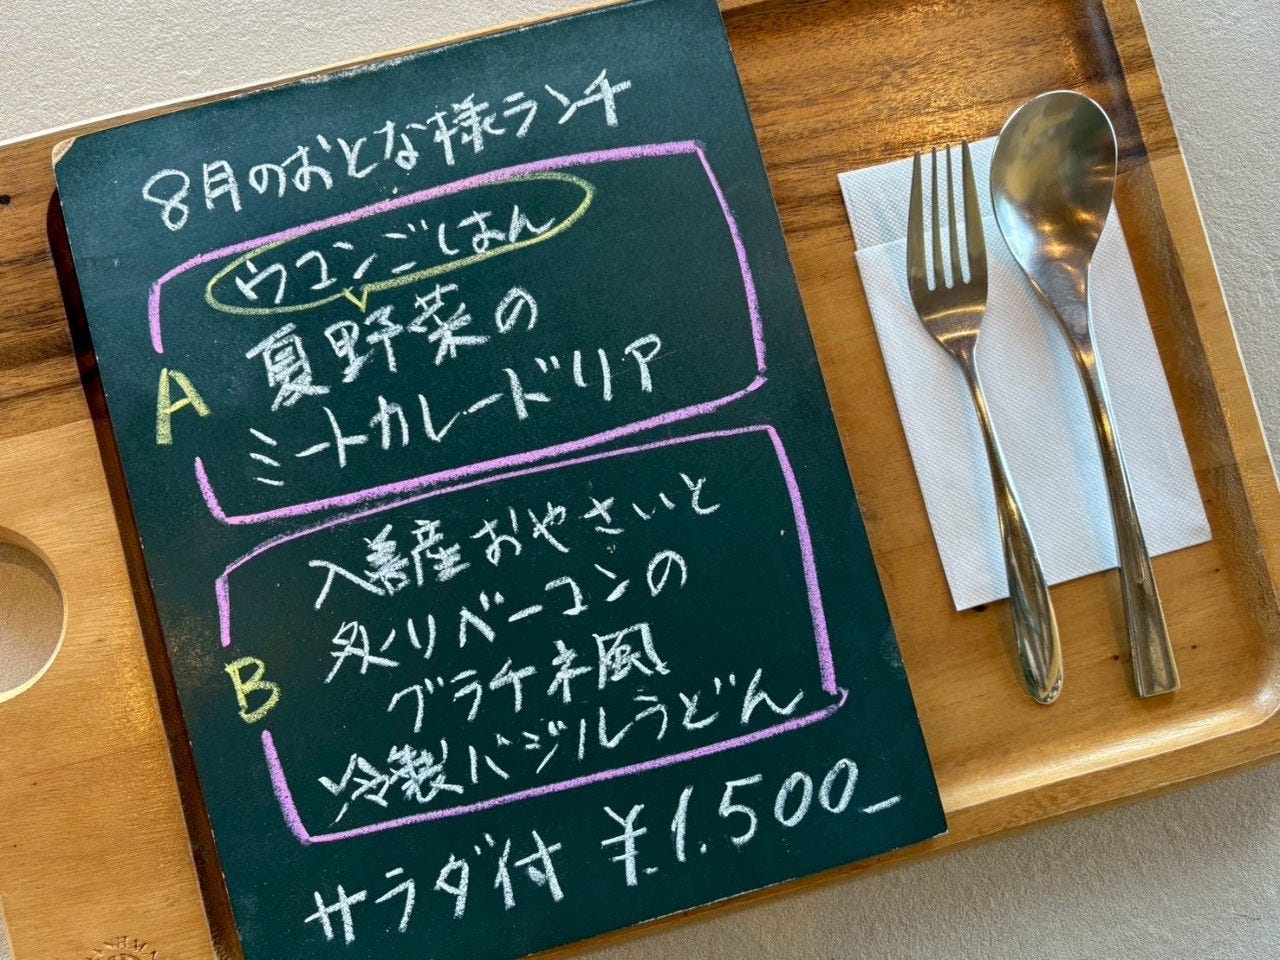 8月のおとな様ランチ
ウコンごはん
夏野菜の
ミートカレードリア
A
入善産おやさいと
炙りベーコンの
グラチネ風
冷製バジルうどん
B
サラダ付 ¥1.500_